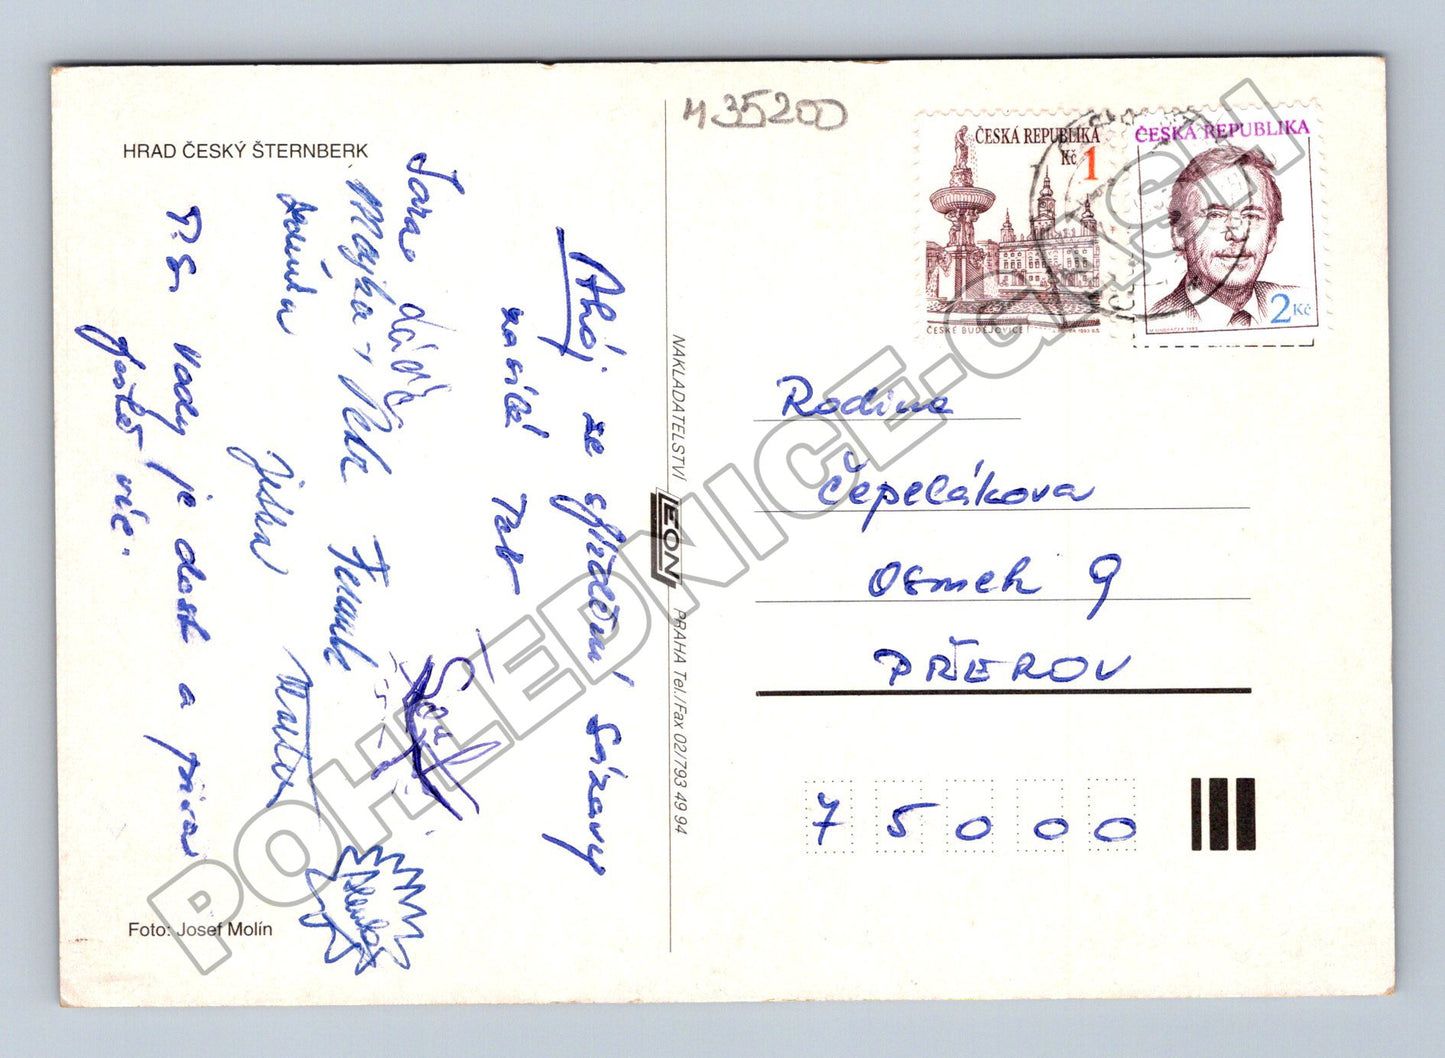 HRAD ČESKÝ ŠTERNBERK
Ahoj ze sjíždění Sázavy
posílá Táb
Jarda
Majka + Petr
Jitka
Martin
Lenka
P.S. Vody je dost a piva
ještě víc.
Foto: Josef Molín
NAKLADATELSTVÍ LEON PRAHA Tel./Fax 02/793 49 94
M35200
ČESKÁ REPUBLIKA
Kč 1
ČESKÉ BUDĚJOVICE
ČESKÁ REPUBLIKA
2 Kč
Rodina
Čepelákova
Osmek 9
PŘEROV
75000
POHLEDNICE-CASH